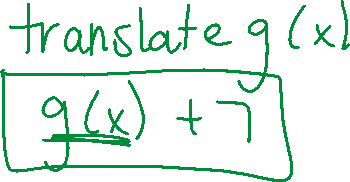 translate g(x)
g(x) + 7